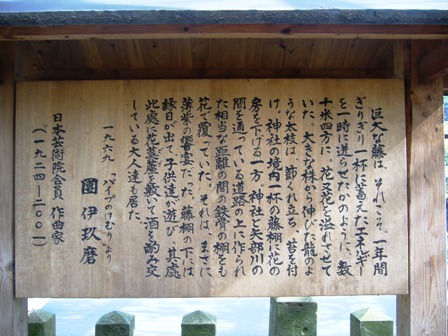 巨大な藤は、それこそ、一年間
ぎりぎり一杯に蓄えたエネルギー
を一時に迸らせたかのように、数
十米四方に、花又花を溢れさせて
いた。大きな株から伸びた龍のよ
うな太枝は、節くれ立ち、苔を付
け、神社の境内一杯の藤棚に花の
房を下げる一方、神社と矢部川の
間を通っている道路の上に作られ
た相当な距離の間の鉄骨の棚をも
花で覆っていた。それは、まさに
薄紫の饗宴だった。藤棚の下には
縁日が出て、子供達が遊び、其處
此處に花茣蓙を敷いて酒を酌み交
している大人達も居た。
一九六九 「パイプのけむり」より
團 伊玖磨
日本芸術院会員 作曲家
(一九二四―二〇〇一)